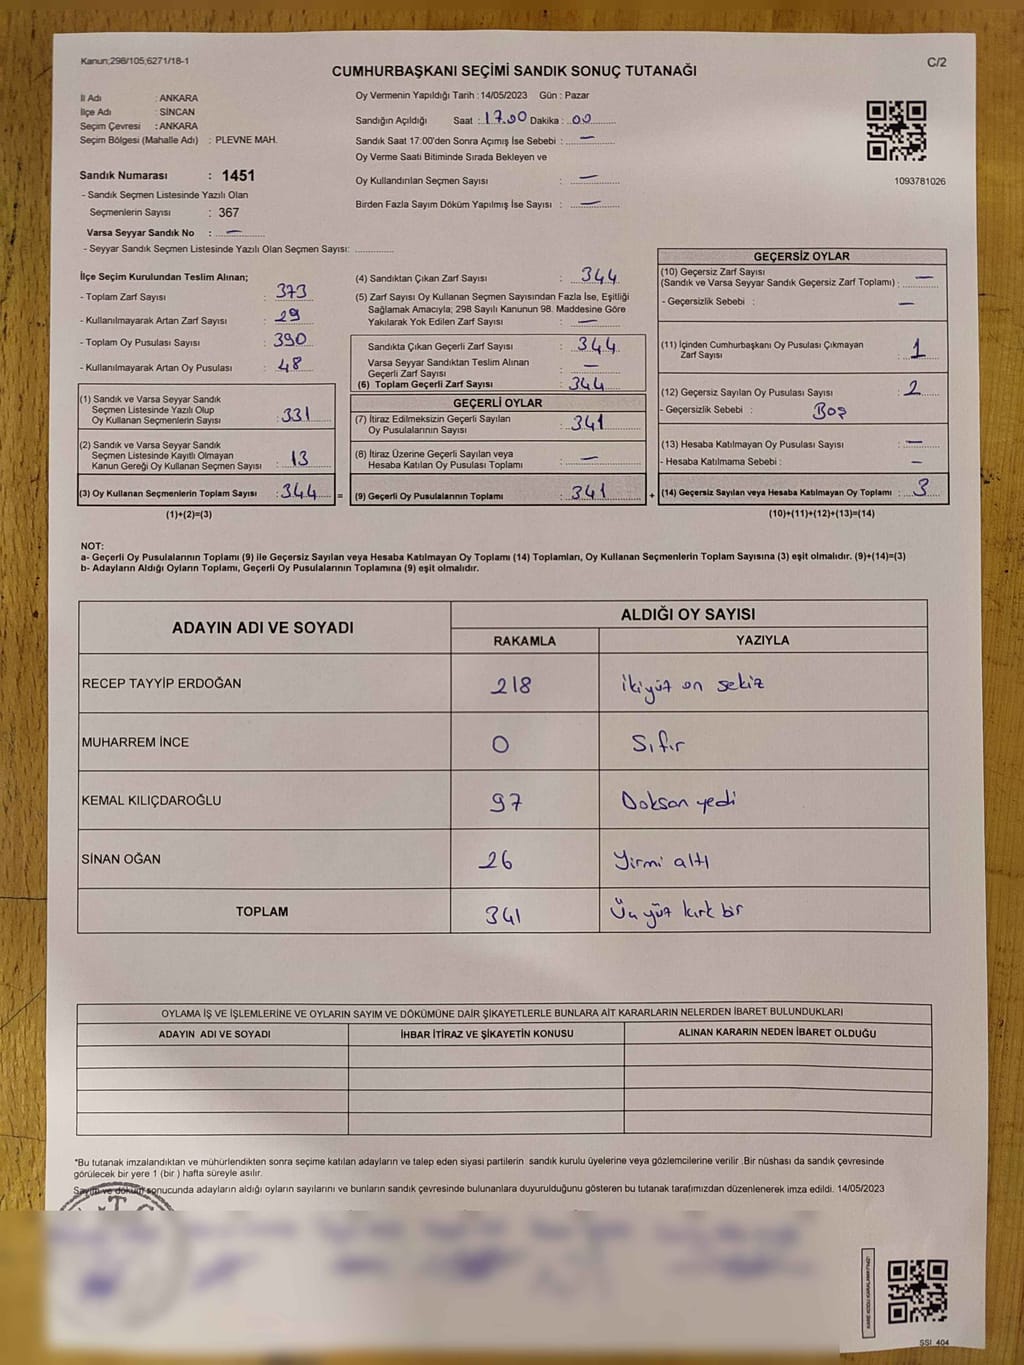 Kanun;298/105;6271/18-1
C/2
CUMHURBAŞKANI SEÇİMİ SANDIK SONUÇ TUTANAĞI
İl Adı : ANKARA
İlçe Adı : SİNCAN
Seçim Çevresi : ANKARA
Seçim Bölgesi (Mahalle Adı) : PLEVNE MAH.
Sandık Numarası : 1451
- Sandık Seçmen Listesinde Yazılı Olan
Seçmenlerin Sayısı : 367
Varsa Seyyar Sandık No : —
- Seyyar Sandık Seçmen Listesinde Yazılı Olan Seçmen Sayısı: ..............
Oy Vermenin Yapıldığı Tarih : 14/05/2023 Gün : Pazar
Sandığın Açıldığı Saat : 17.00 Dakika : 00
Sandık Saat 17:00'den Sonra Açımış İse Sebebi : —
Oy Verme Saati Bitiminde Sırada Bekleyen ve
Oy Kullandırılan Seçmen Sayısı : —
Birden Fazla Sayım Döküm Yapılmış İse Sayısı : —
1093781026
İlçe Seçim Kurulundan Teslim Alınan;
- Toplam Zarf Sayısı : 373
- Kullanılmayarak Artan Zarf Sayısı : 29
- Toplam Oy Pusulası Sayısı : 390
- Kullanılmayarak Artan Oy Pusulası : 48
(1) Sandık ve Varsa Seyyar Sandık
Seçmen Listesinde Yazılı Olup
Oy Kullanan Seçmenlerin Sayısı : 331
(2) Sandık ve Varsa Seyyar Sandık
Seçmen Listesinde Kayıtlı Olmayan
Kanun Gereği Oy Kullanan Seçmen Sayısı : 13
(3) Oy Kullanan Seçmenlerin Toplam Sayısı : 344 =
(1)+(2)=(3)
(4) Sandıktan Çıkan Zarf Sayısı : 344
(5) Zarf Sayısı Oy Kullanan Seçmen Sayısından Fazla İse, Eşitliği
Sağlamak Amacıyla; 298 Sayılı Kanunun 98. Maddesine Göre
Yakılarak Yok Edilen Zarf Sayısı : —
Sandıkta Çıkan Geçerli Zarf Sayısı : 344
Varsa Seyyar Sandıktan Teslim Alınan
Geçerli Zarf Sayısı : —
(6) Toplam Geçerli Zarf Sayısı : 344
GEÇERLİ OYLAR
(7) İtiraz Edilmeksizin Geçerli Sayılan
Oy Pusulalarının Sayısı : 341
(8) İtiraz Üzerine Geçerli Sayılan veya
Hesaba Katılan Oy Pusulası Toplamı : —
(9) Geçerli Oy Pusulalarının Toplamı : 341 +
GEÇERSİZ OYLAR
(10) Geçersiz Zarf Sayısı
(Sandık ve Varsa Seyyar Sandık Geçersiz Zarf Toplamı) : —
- Geçersizlik Sebebi : —
(11) İçinden Cumhurbaşkanı Oy Pusulası Çıkmayan
Zarf Sayısı : 1
(12) Geçersiz Sayılan Oy Pusulası Sayısı : 2
- Geçersizlik Sebebi : Boş
(13) Hesaba Katılmayan Oy Pusulası Sayısı : —
- Hesaba Katılmama Sebebi : —
(14) Geçersiz Sayılan veya Hesaba Katılmayan Oy Toplamı : 3
(10)+(11)+(12)+(13)=(14)
NOT:
a- Geçerli Oy Pusulalarının Toplamı (9) ile Geçersiz Sayılan veya Hesaba Katılmayan Oy Toplamı (14) Toplamları, Oy Kullanan Seçmenlerin Toplam Sayısına (3) eşit olmalıdır. (9)+(14)=(3)
b- Adayların Aldığı Oyların Toplamı, Geçerli Oy Pusulalarının Toplamına (9) eşit olmalıdır.
ADAYIN ADI VE SOYADI
ALDIĞI OY SAYISI
RAKAMLA YAZIYLA
RECEP TAYYİP ERDOĞAN 218 İkiyüz on sekiz
MUHARREM İNCE 0 Sıfır
KEMAL KILIÇDAROĞLU 97 Doksan yedi
SİNAN OĞAN 26 Yirmi altı
TOPLAM 341 Üç yüz kırk bir
OYLAMA İŞ VE İŞLEMLERİNE VE OYLARIN SAYIM VE DÖKÜMÜNE DAİR ŞİKAYETLERLE BUNLARA AİT KARARLARIN NELERDEN İBARET BULUNDUKLARI
ADAYIN ADI VE SOYADI İHBAR İTİRAZ VE ŞİKAYETİN KONUSU ALINAN KARARIN NEDEN İBARET OLDUĞU
*Bu tutanak imzalandıktan ve mühürlendikten sonra seçime katılan adayların ve talep eden siyasi partilerin sandık kurulu üyelerine veya gözlemcilerine verilir .Bir nüshası da sandık çevresinde
görülecek bir yere 1 (bir ) hafta süreyle asılır.
Sayım ve döküm sonucunda adayların aldığı oyların sayılarını ve bunların sandık çevresinde bulunanlara duyurulduğunu gösteren bu tutanak tarafımızdan düzenlenerek imza edildi. 14/05/2023
SSI 404